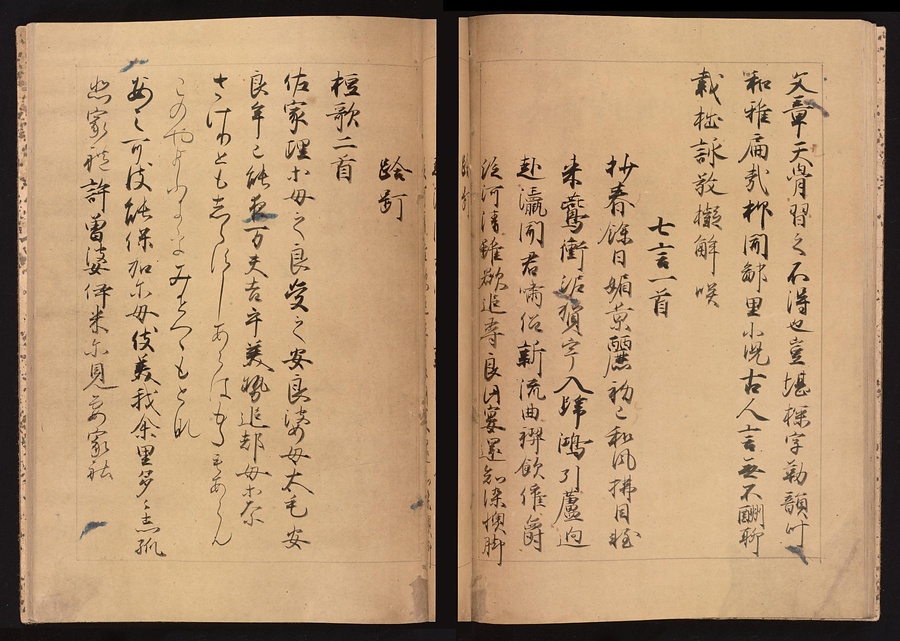 文章天骨習之不得也豈堪探字勒韻叶
和雅扁哉抑聞鄙里小児古人言無不酬聊
載拙詠敬擬解咲
七言一首
杪春餘日媚景麗初巳和風拂自軽
来鷰銜泥賀宇入歸鴻引蘆迥
赴瀛聞君嘯侶新流曲禊飲催爵
泛河清雖欲追尋良此宴還知染懊脚
跉䟓
短歌二首
佐家理等母之良受之安良婆母太毛安
良牟己能夜万夫吉乎美勢追都母等奈
さけりともしらすしあらはもたもあらん
このやまふきをみせつゝもとな
安之可伎能保加尓母伎美我余里多々志孤
悲家礼許曽婆伊米尓見要家礼